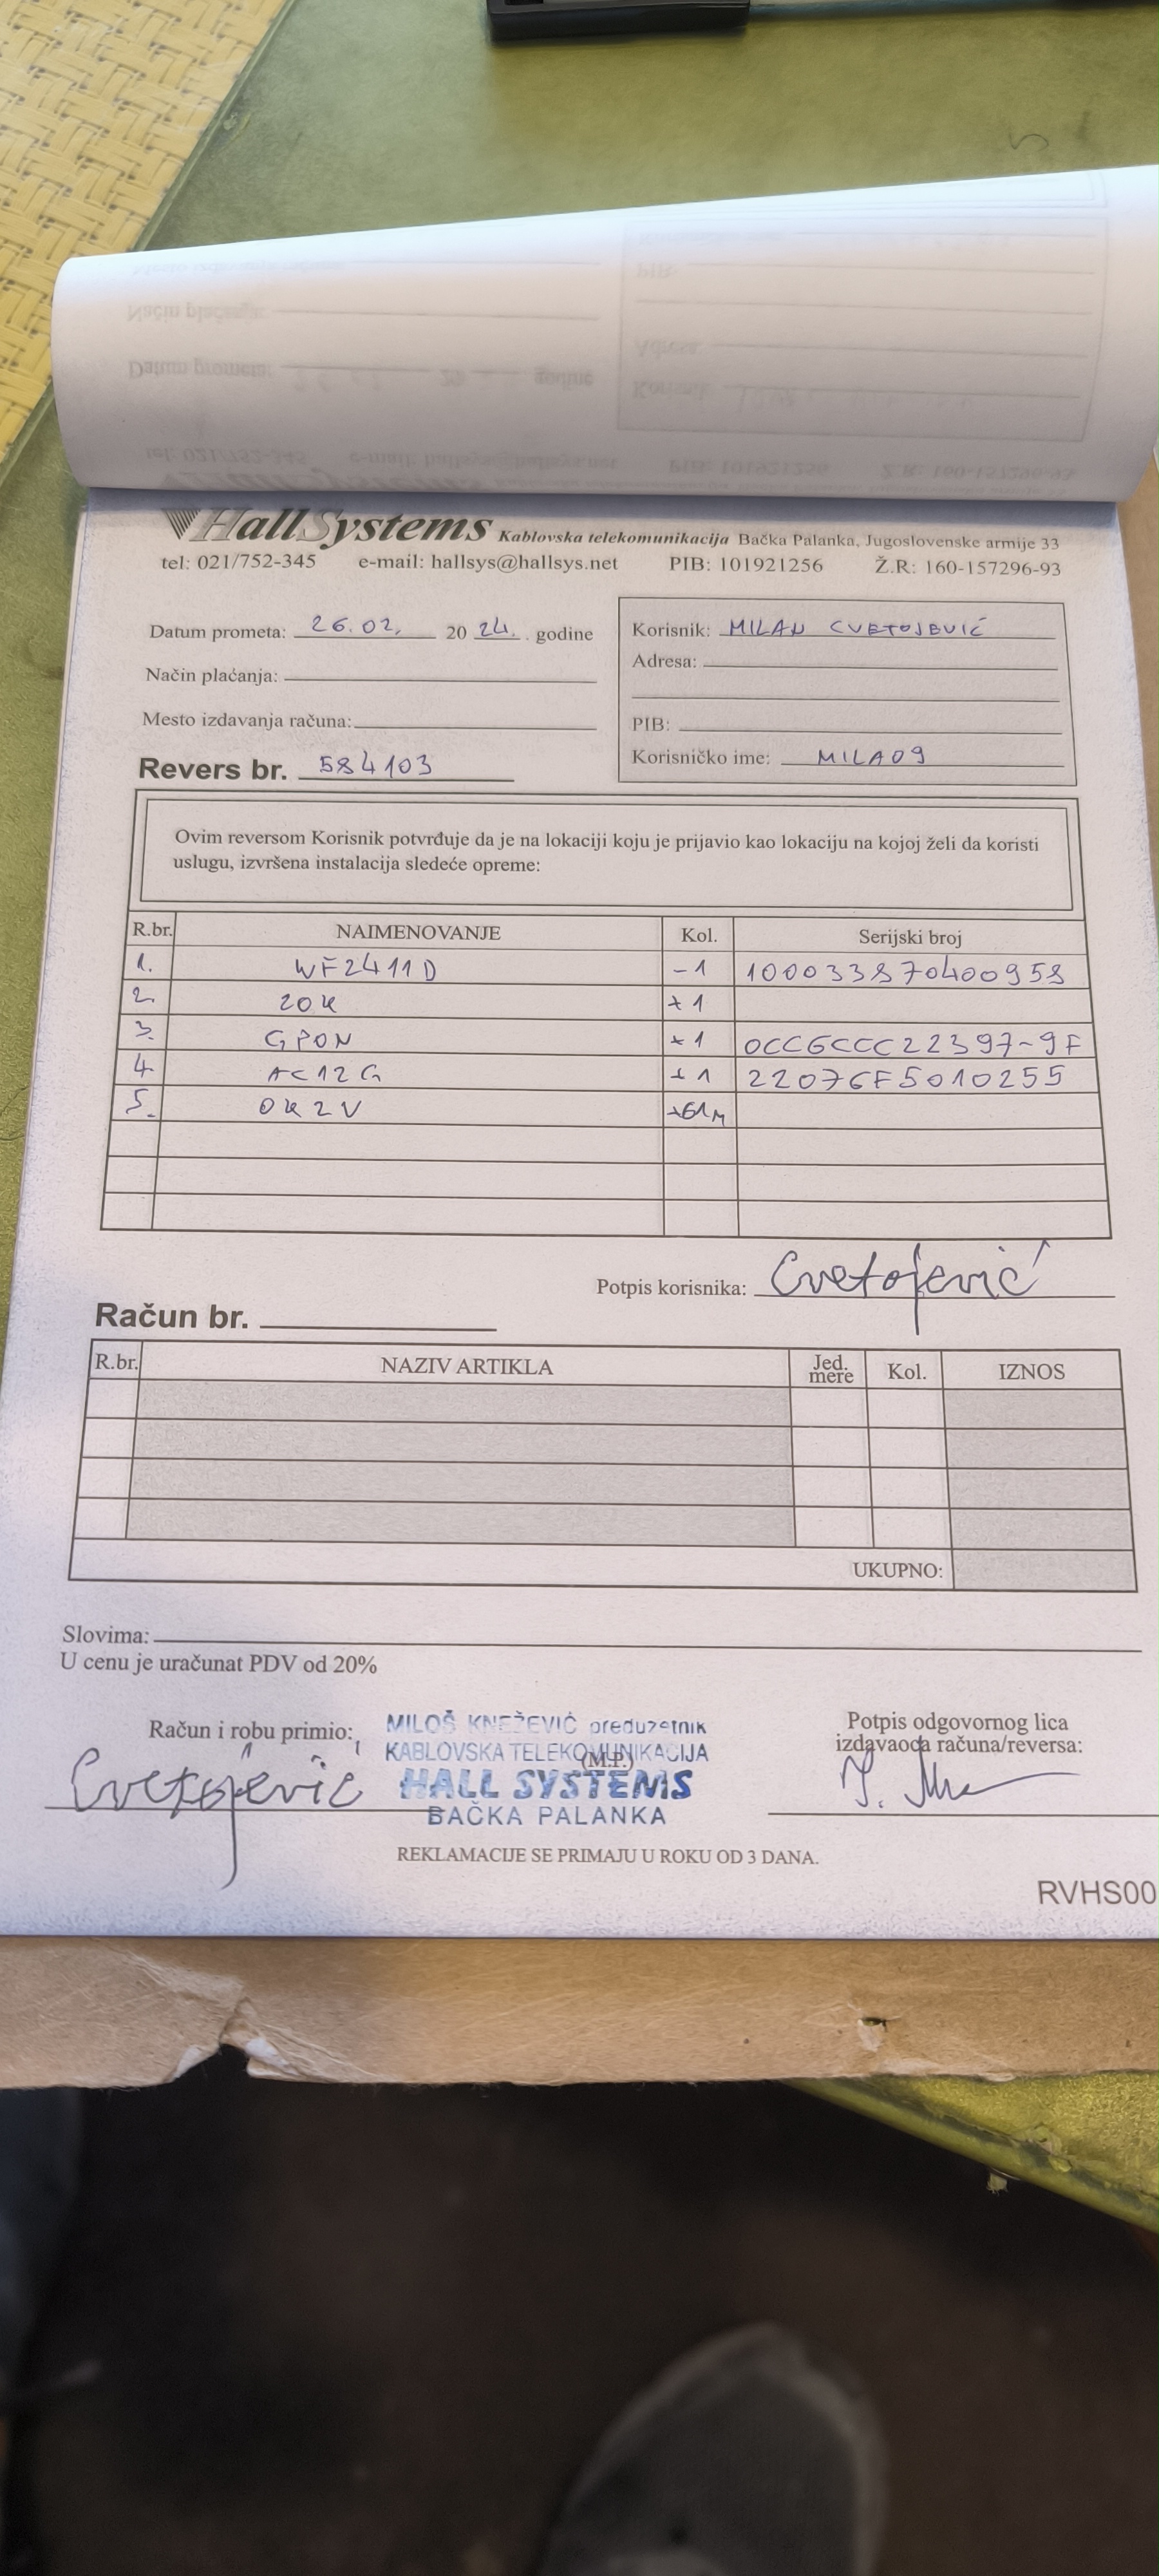 HallSystems Kablovska telekomunikacija Bačka Palanka, Jugoslovenske armije 33
tel: 021/752-345 e-mail: hallsys@hallsys.net PIB: 101921256 Ž.R: 160-157296-93
Datum prometa: 26.02. 20 24. godine
Način plaćanja:
Mesto izdavanja računa:
Revers br. 584103
Korisnik: MILAN CVETOJEVIĆ
Adresa:
PIB:
Korisničko ime: MILA09
Ovim reversom Korisnik potvrđuje da je na lokaciji koju je prijavio kao lokaciju na kojoj želi da koristi
uslugu, izvršena instalacija sledeće opreme:
R.br. NAIMENOVANJE Kol. Serijski broj
1. WF2411D -1 100033870400958
2. 20K +1
3. GPON +1 0CCGCCC22397-9F
4. AC12G +1 22076F5010255
5. OK2V +61M
Potpis korisnika: Cvetojević
Račun br.
R.br. NAZIV ARTIKLA Jed. mere Kol. IZNOS
UKUPNO:
Slovima:
U cenu je uračunat PDV od 20%
Račun i robu primio:
Cvetojević
MILOŠ KNEŽEVIĆ preduzetnik
KABLOVSKA TELEKOMUNIKACIJA
(M.P.)
HALL SYSTEMS
BAČKA PALANKA
Potpis odgovornog lica
izdavaoca računa/reversa:
REKLAMACIJE SE PRIMAJU U ROKU OD 3 DANA.
RVHS00